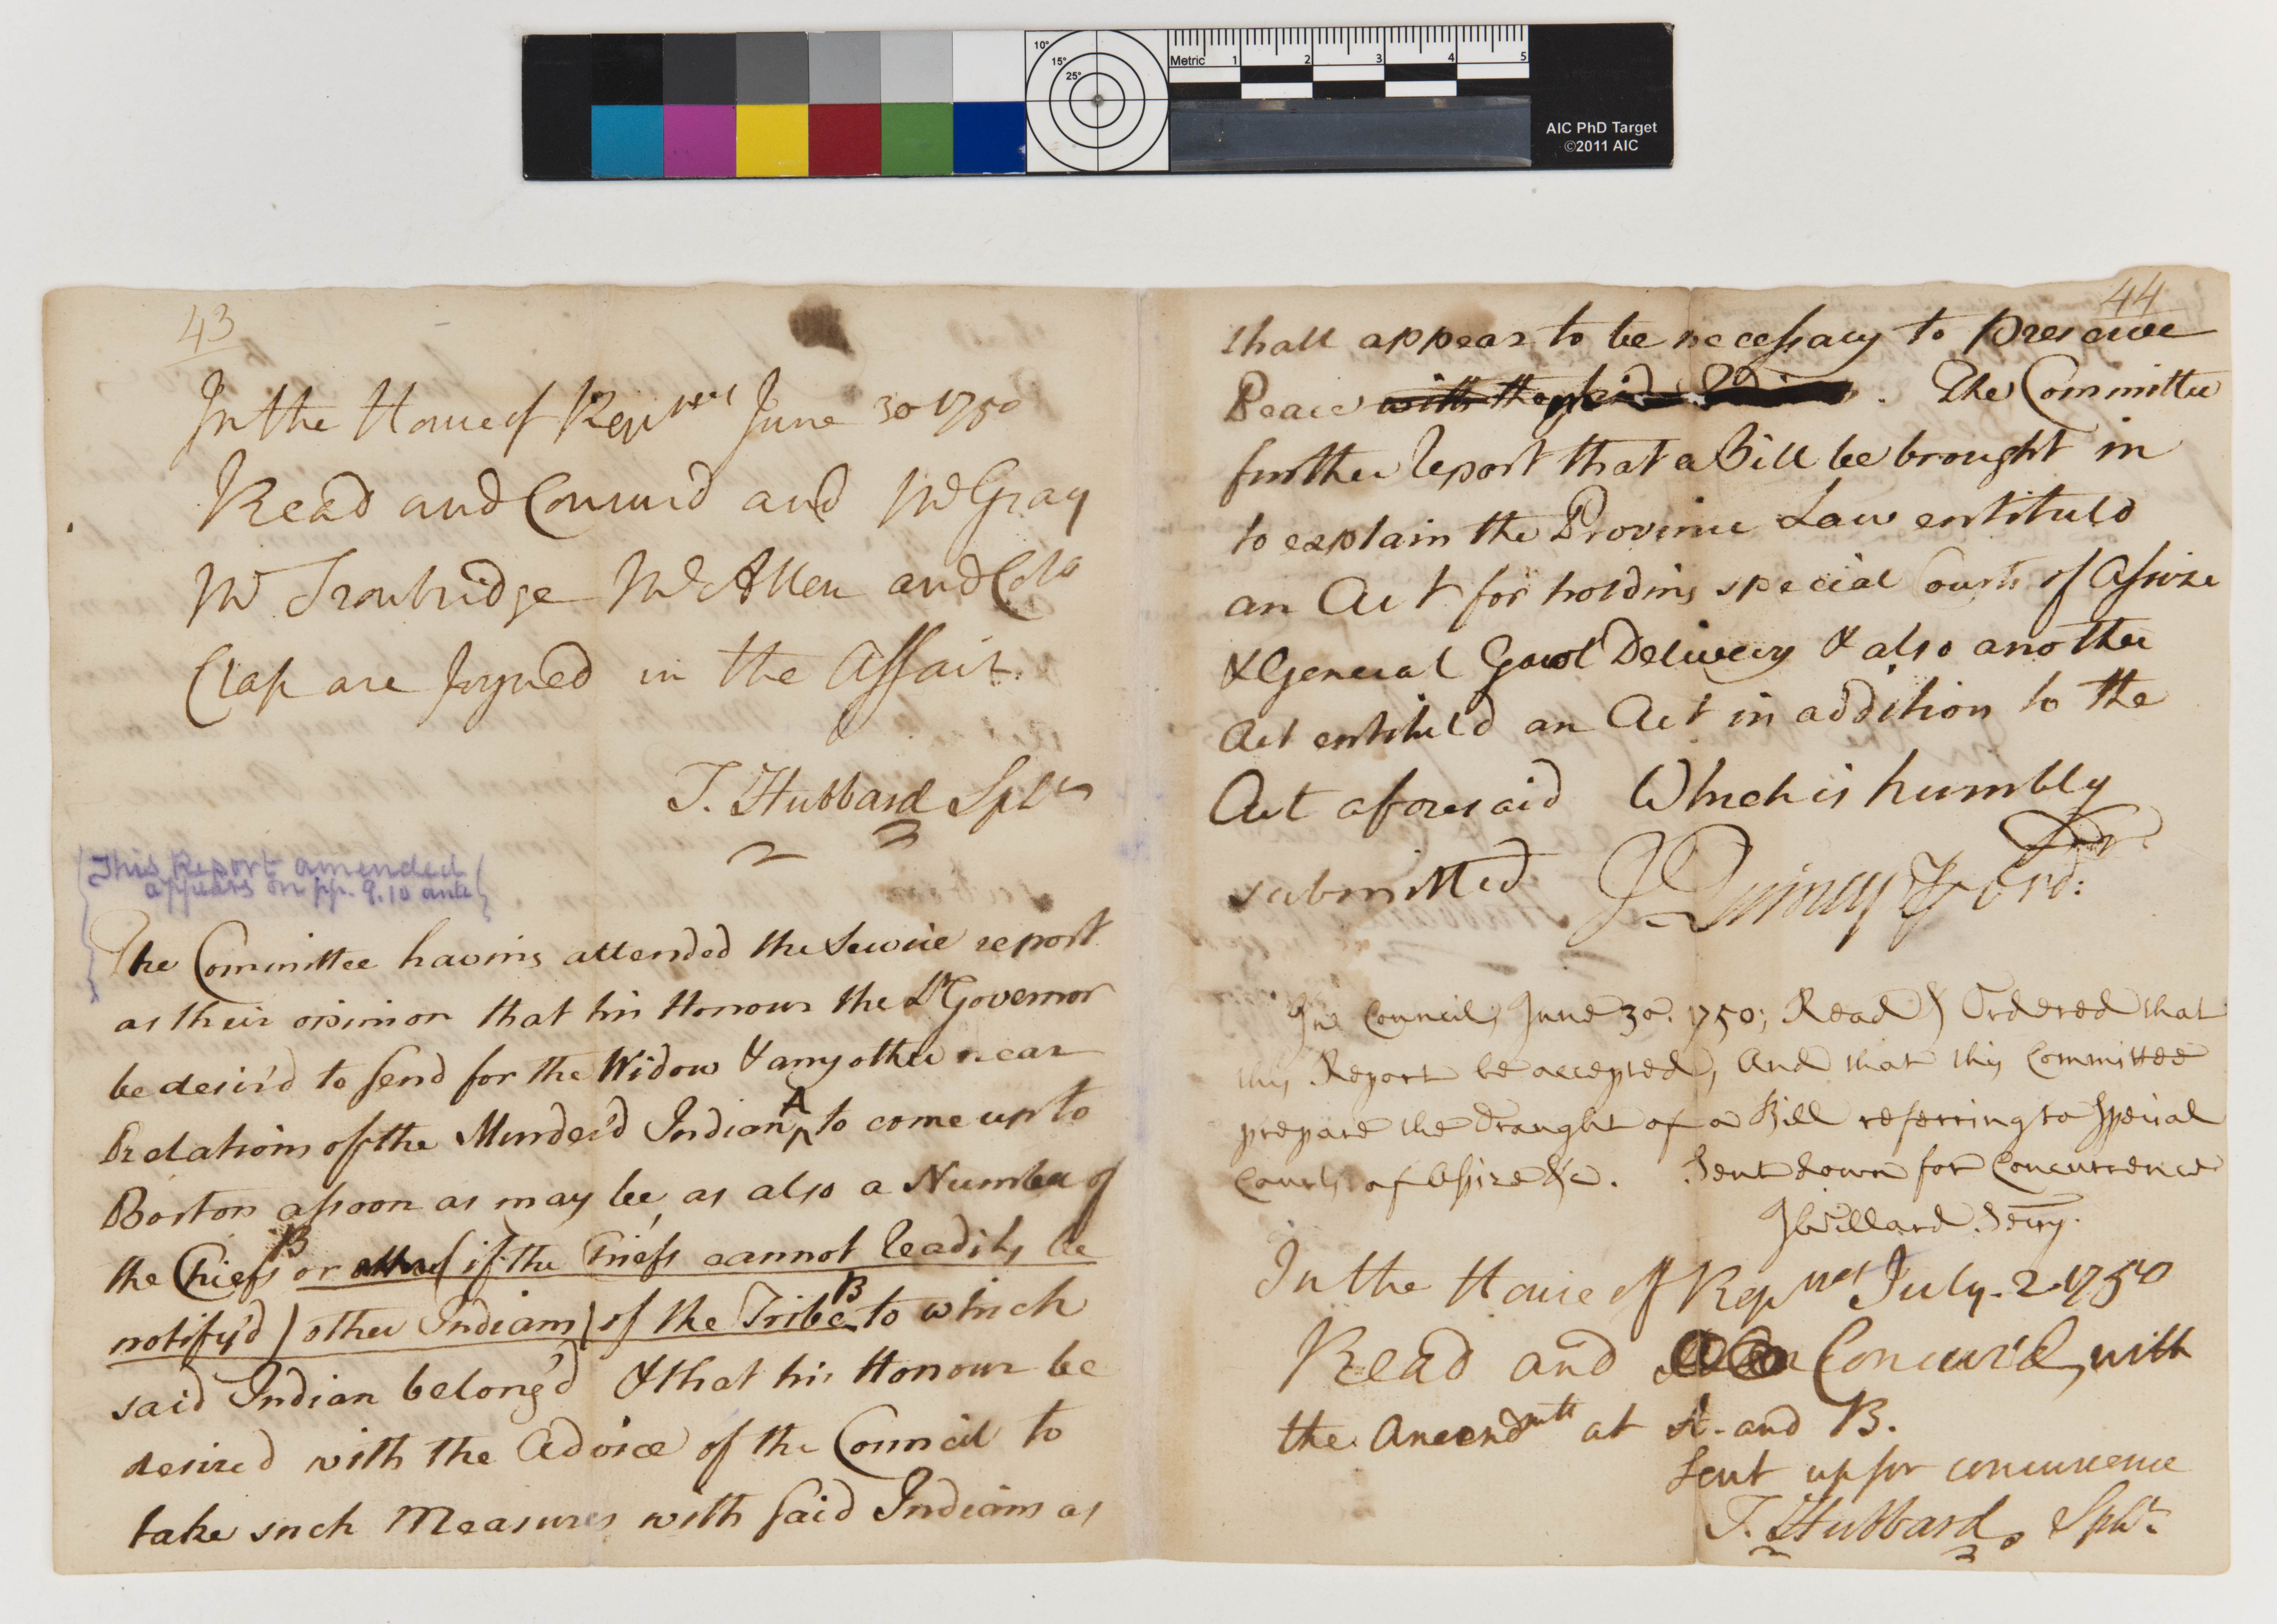 10°
15°
25°
Metric 1 2 3 4 5
AIC PhD Target
©2011 AIC
43
In the House of Rep^ves June 30 1750
Read and Concurrd and Mr Gray
Mr Trowbridge Mr Allen and Colo
Clap are joyned in the Affair.
T. Hubbard Spkr
This Report amended
appears on pp. 9.10 ante
The Committee having attended the Service report
as their opinion that his Honour the Lt Governor
be desir'd to send for the Widow & any other near
Relations of the Murder'd Indian A to come up to
Boston assoon as may be, as also a Number of
the Chiefs B or (if the Chiefs cannot readily be
notify'd) other Indians) of the Tribe B to which
said Indian belong'd & that his Honour be
desired with the Advice of the Council to
take such Measures with said Indians as
44
shall appear to be necessary to preserve
Peace with the said Indians. The Committee
further report that a Bill be brought in
to explain the Province Law entituld
an Act for holding special Courts of Assize
& General Gaol Delivery & also another
Act entituld an Act in addition to the
Act aforesaid Which is humbly
submitted J Quincy pr Ordr:
In Council, June 30. 1750; Read & Ordered that
this Report be accepted, And that this Committee
prepare the Draught of a Bill referring to Special
Courts of Assize &c. Sent down for Concurrence
J Willard Secry.
In the House of Rep^ves July. 2. 1750
Read and Concurr'd, with
the Amendmts at A. and B.
Sent up for concurrence
T. Hubbard Spkr.